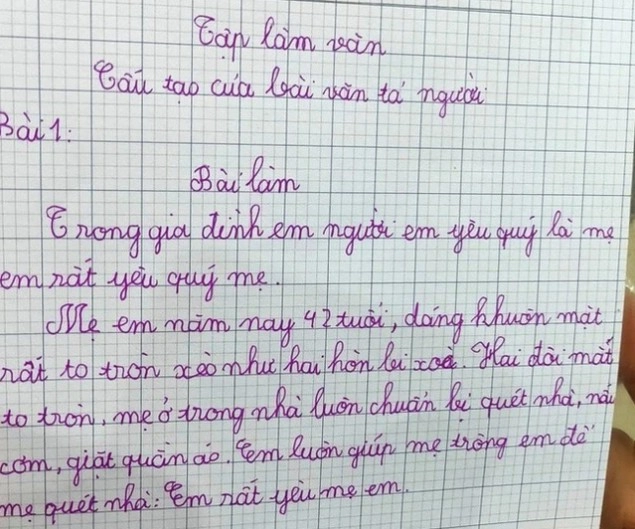 Tập làm văn
Cấu tạo của bài văn tả người
Bài 1:
Bài làm
Trong gia đình em người em yêu quý là mẹ
em rất yêu quý mẹ.
Mẹ em năm nay 42 tuổi, dáng khuôn mặt
rất to tròn xéo như hai hòn bi xoà. Hai đôi mắt
to tròn, mẹ ở trong nhà luôn chuẩn bị quét nhà, nấu
cơm, giặt quần áo. Em luôn giúp mẹ trông em để
mẹ quét nhà: Em rất yêu mẹ em.